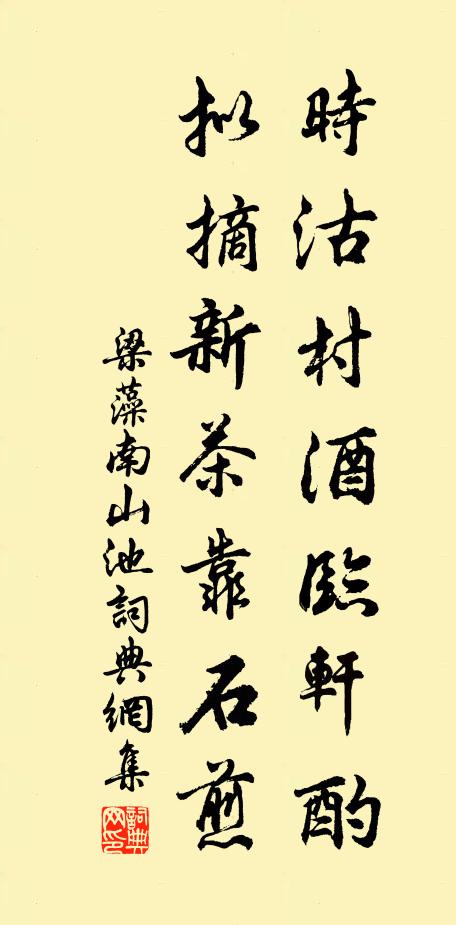 時沽村酒臨軒酌
拟摘新茶靠石煎
梁藻南山池詞典網集
詞典網印